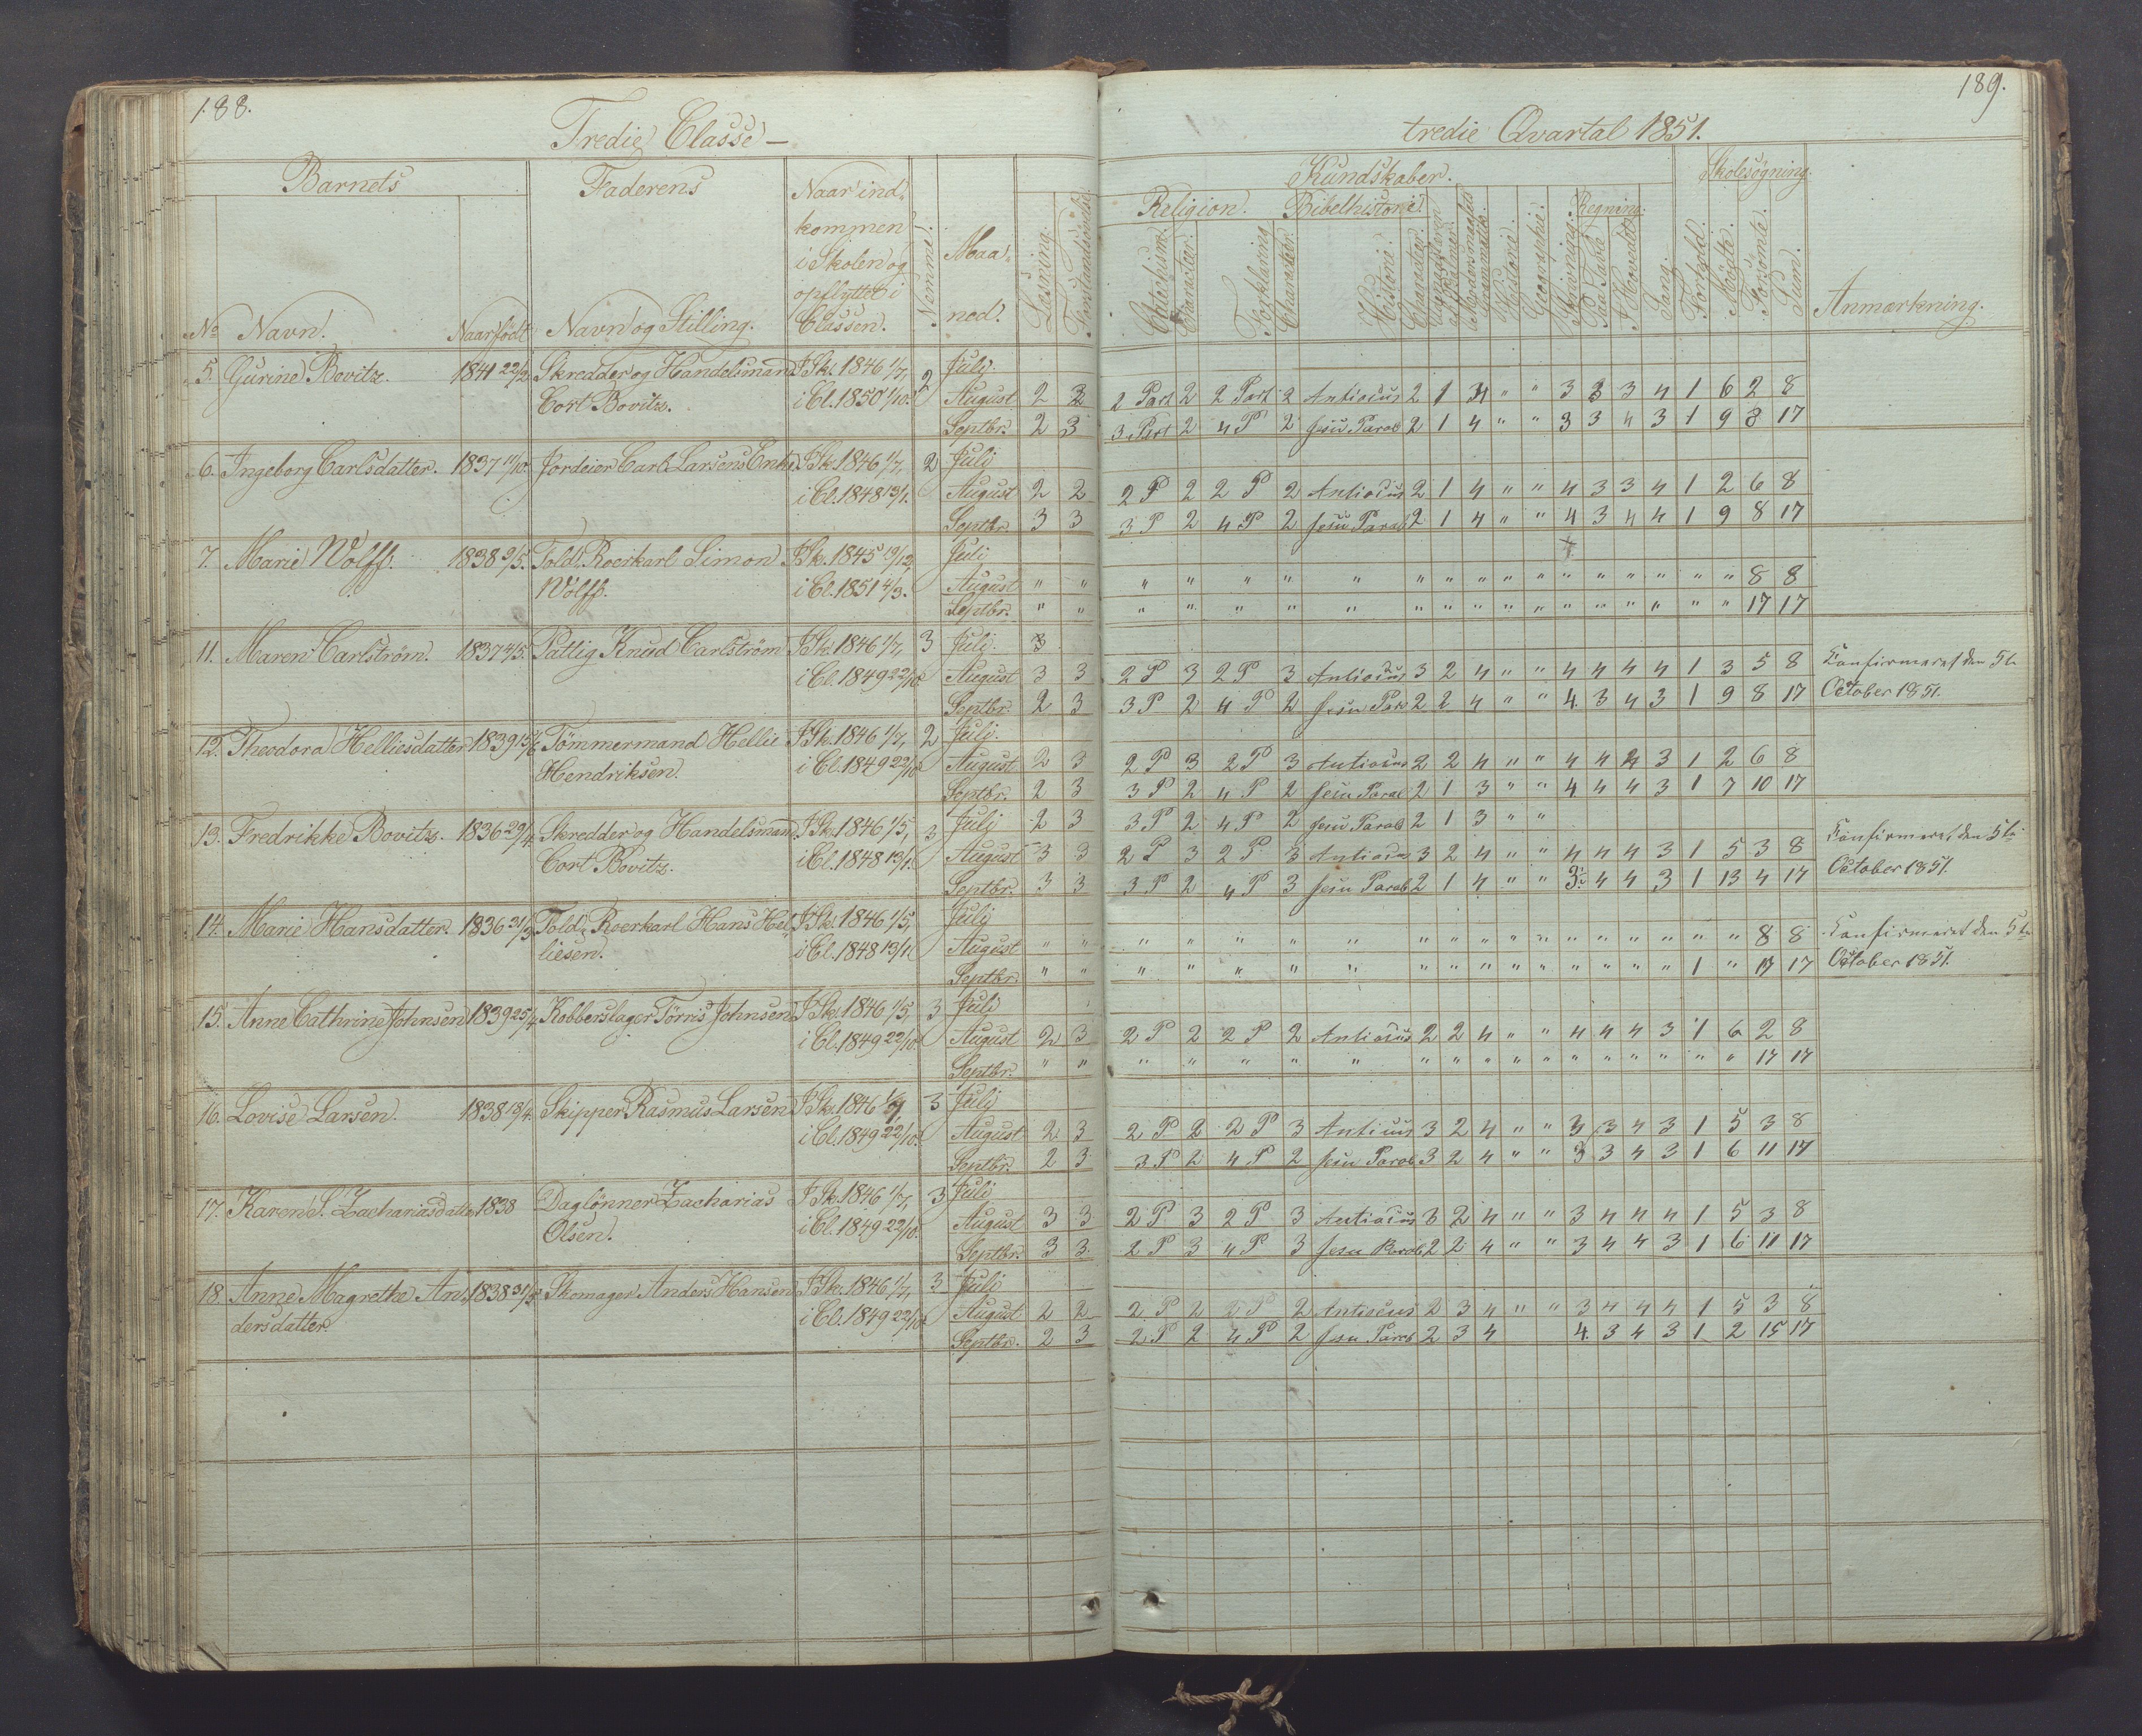 188.
Tredie Classe —
Barnets
Faderens
Naar ind-
kommen
i Skolen og
opflyttet i
Classen.
Nemme.
Maa-
ned.
Læsning.
Forstandsøvelse
No Navn. Naar født Navn og Stilling.
5. Gurine Bovitz. 1841 22/2 Skredder og Handelsmand I Sk. 1846 1/7, 2 Juli
Cort Bovitz. i Cl. 1850 1/10. August 2 2
Septbr. 2 3
6. Ingeborg Carlsdatter. 1837 11/10. Jordeier Carl Larsens Enke I Sk. 1846 1/7, 2 Juli
i Cl. 1848 13/1. August 2 2
Septbr. 3 3
7. Marie Wolff. 1838 9/5. Told. Roerkarl Simon I Sk. 1845 19/12, Juli
Wolff. i Cl. 1851 4/3. August " "
Septbr. " "
11. Maren Carlström. 1837 4/5. Pattig Knud Carlström I Sk. 1846 1/7, 3 Juli. 3
i Cl. 1849 22/10. August 3 3
Septbr. 2 3
12. Theodora Helliesdatter 1839 15/6 Tömmermand Hellie I Sk. 1846 1/7, 2 Juli.
Hendriksen. i Cl. 1849 22/10. August 2 3
Septbr. 2 3
13. Fredrikke Bovitz. 1836 29/4. Skredder og Handelsmand I Sk. 1846 1/5, 3 Juli 2 3
Cort Bovitz. i Cl. 1848 13/1. August 3 3
Septbr. 3 3
14. Marie Hansdatter. 1836 31/3 Told. Roerkarl Hans Hel- I Sk. 1846 1/5, Juli
liesen. i Cl. 1848 13/1. August " "
Septbr. " "
15. Anne Cathrine Johnsen 1839 25/4 Kobberslager Törris Johnsen I Sk. 1846 1/5, 3 Juli
i Cl. 1849 22/10. August 2 3
Septbr. " "
16. Lovise Larsen. 1838 18/4. Skipper Rasmus Larsen I Sk. 1846 3 Juli
i Cl. 1849 22/10. August 2 3
Septbr. 2 3
17. Karen S. Zachariasdatter 1838 Daglönner Zacharias I Sk. 1846 1/7, 3 Juli
Olsen. i Cl. 1849 22/10. August 3 3
Septbr. 3 3
18. Anne Magrethe An- 1838 31/5 Skomager Anders Hansen I Sk. 1846 1/7, 3 Juli
dersdatter. i Cl. 1849 22/10. August 2 2
Septbr. 2 3
189.
tredie Qvartal 1851.
Kundskaber. Skolesøgning.
Religion. Bibelhistorie. Regning.
Catechism. Character. Forklaring Character. Historie. Character. Historie. Geographie. Skrivning. Paa Tavle I Hovedet Sang. Forhold. Mödte. Forsömte. Sum.
Anmærkning.
2 Part 2 2 Part 2 Antiocius 2 1 4 " " 3 3 3 4 1 6 2 8
3 Part 2 4 P 2 Jesu Parab 2 1 4 " " 3 3 4 3 1 9 8 17
2 P 2 2 P 2 Antiocius 2 1 4 " " 4 3 3 4 1 2 6 8
3 P 2 4 P 2 Jesu Parab 2 1 4 " " 4 3 4 4 1 9 8 17
" " " " " " " " " " " " " " " " 8 8
" " " " " " " " " " " " " " " " 17 17
2 P 3 2 P 3 Antiocius 3 2 4 " " 4 4 4 4 1 3 5 8 Konfirmeret den 5te
3 P 2 4 P 2 Jesu Par 2 2 4 " " 4. 3 4 3 1 9 8 17 October 1851.
2 P 3 2 P 3 Antiocius 2 2 4 " " 4 4 4 3 1 2 6 8
3 P 2 4 P 2 Jesu Parab 2 1 3 " " 4. 4 4 3 1 7 10 17
3 P 2 4 P 2 Jesu Parab 2 1 3 " "
2 P 3 2 P 3 Antiocius 3 2 4 " " 4 4 4 3 1 5 3 8 Konfirmeret den 5te
3 P 2 4 P 3 Jesu Parab 2 1 4 " " 3. 4 4 3 1 13 4 17 October 1851.
" " " " " " " " " " " " " " " " 8 8 Konfirmeret den 5te
" " " " " " " " " " " " " " 1 " 17 17 October 1851.
2 P 2 2 P 2 Antiocius 2 2 4 " " 4 4 4 3 1 6 2 8
" " " " " " " " " " " " " " " " 17 17
2 P 2 2 P 3 Anticius 3 2 4 " " 3 3 4 3 1 5 3 8
3 P 2 4 P 2 Jesu Parab 3 2 4 " " 3 3 4 3 1 6 11 17
2 P 3 2 P 3 Antiocius 3 2 4 " " 3 4 4 4 1 5 3 8
2 P 3 4 P 3 Jesu Parab 2 2 4 " " 3 4 4 3 1 6 11 17
2 P 2 2 P 2 Antiocius 2 3 4 " " 3 4 4 4 1 5 3 8
2 P 2 4 P 2 Jesu Parab 2 3 4 4. 3 4 3 1 2 15 17